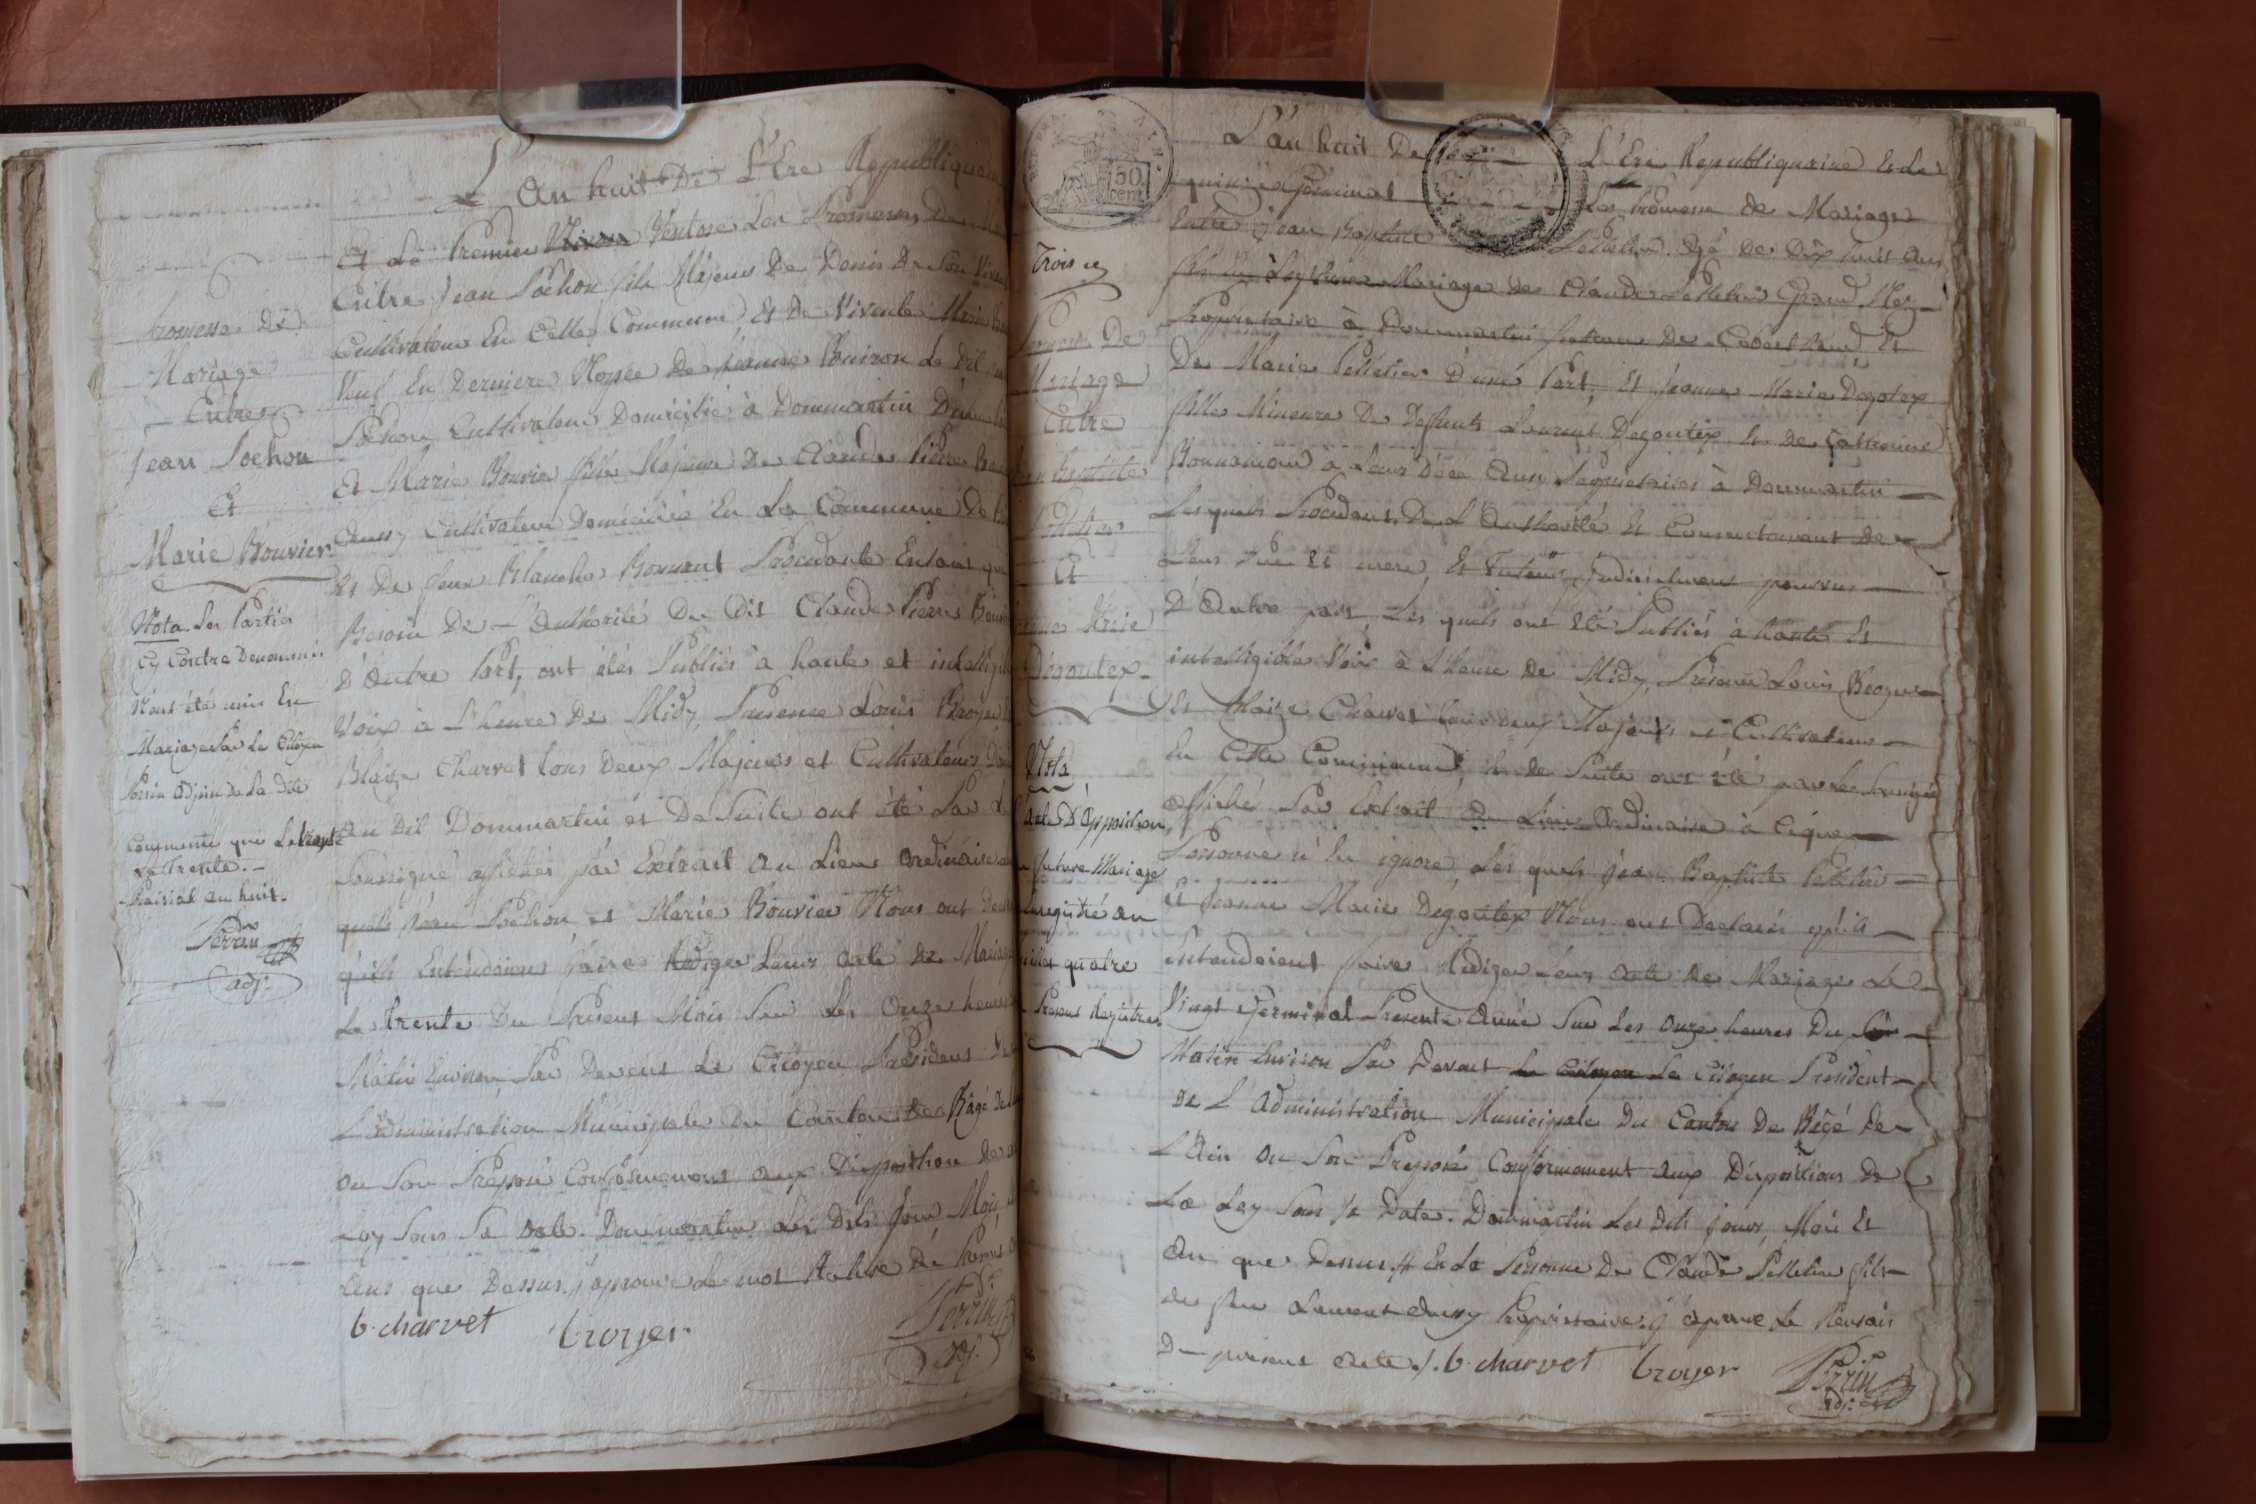 L'An huit De L'Ere Republiquaine
Et Le Premier Ventose Les Promesses De
Entre Jean Sochon fils Majeur De Denis De Son Vivant
Cultivateur En Cette Commune, Et De Vivente Marie
Veuf En Derniere Nopce De Jeanne Le Dit
Sochon Cultivateur Domicilié à Dommartin D'une
Et Marie Bouvier fille Majeure De Claude Pierre
Aussy Cultivateur Domicilié En La Commune De
Et De feue Blanche Bonnant Procédante En tant que
Besoin De L'Authorité Du Dit Claude Pierre Bouvier
D'Autre Part, ont étés Publiés à haute et intelligible
Voix à L'heure De Midy, Presence Louis Broyer
Blaize Charvet tous Deux Majeurs et Cultivateurs
Au Dit Dommartin et De Suite ont été Par Le
Soussigné affichés par Extrait au Lieu ordinaire
quels Jean Sochon et Marie Bouvier Nous ont
qu'ils Entendoient faire Rediger Leurs Acte de Mariage
Le trente Du Present Mois Sur Les Onze heures
Matin Environ Par Devant Le Citoyen President
L'Administration Municipale Du Canton De Bâgé
ou Son Preposé Conformement aux Disposition De
Loy Sous Sa Date. Dommartin Les Dits Jour Mois
Ans que Dessus j'approuve Le mot
b. charvet broyer Perrin
adj.
Promesse De
Mariage
Entre
Jean Sochon
Et
Marie Bouvier
Nota. Les Parties
Cy Contre Denommés
N'ont été unis En
Mariage Par Le Citoyen
Perrin adjoint De La Dite
Commune que Le trente
Le Trente.
Prairial an huit.
Perrin
adj.
50
cent
L'an huit De L'Ere Republiquaine Et Le
quinze Germinal Les Promesse De Mariage
Entre Jean Baptiste Pelletier Agé De Dix huit Ans
fils Légitime Mariage De Claude Pelletier Grand
Propriétaire à Dommartin
De Marie Pelletier D'une Part, Et Jeanne Marie Degoutex
fille Mineure De Deffunts Laurent Degoutex Et De Catherine
à Leurs Décé Aussy Propriétaires à Dommartin
Lesquels Procédants De L'Authorité Et Consentement De
Leurs Pere Et mere, Et Tuteur judiciairement pourvus
D'Autre part, Les quels ont été Publiés à haute Et
intelligible Voix à L'heure De Midy, Presence Louis Broyer
Et Blaize Charvet tous deux Majeurs et Cultivateurs
En Cette Commune, Et De Suite ont été par Le Soussigné
affiché Par Extrait Au Lieu Ordinaire à ce que
Personne n'En ignore, Les quels Jean Baptiste Pelletier
Et Jeanne Marie Degoutex Nous ont Declaré qu'ils
Entendoient faire Rediger Leurs Acte De Mariage Le
Vingt Germinal Presente Année Sur Les Onze heures Du
Matin Environ Par Devant Le Citoyen President
De L'Administration Municipale Du Canton De Bâgé De
L'Ain ou Son Preposé Conformement aux Dispositions De
La Loy Sous Sa Date. Dommartin Les Dits jours, Mois Et
An que Dessus // En La Personne De Claude Pelletier fils
de feu Laurent Aussy Propriétaire j'aprouve Le Renvois
Du present acte ./. b. charvet broyer Perrin
adj.
Trois
De
Mariage
Entre
Jean Baptiste
Pelletier
Et
Marie
Degoutex
Nota
acte D'Opposition
future Mariage
Enregistré au
quatre
Present Registre